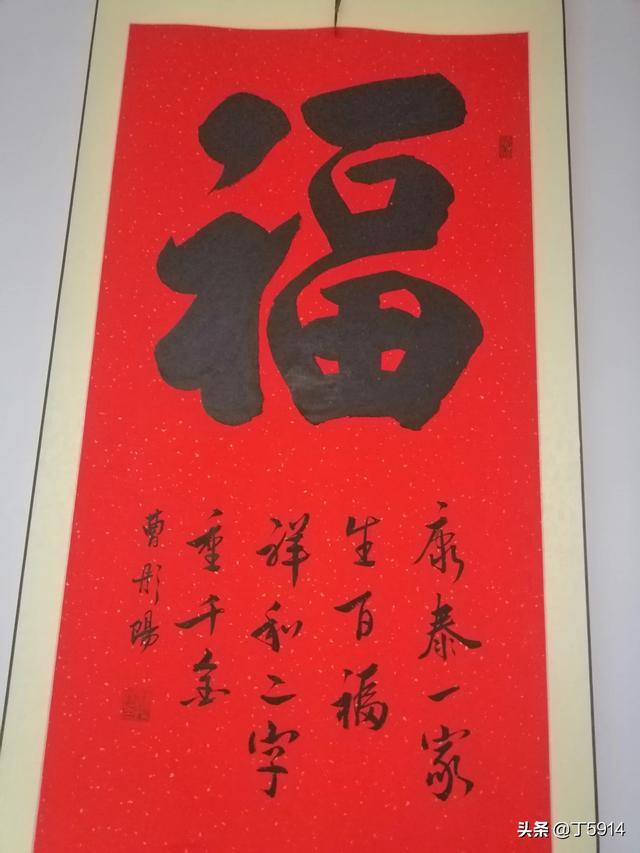 福
康泰一家
生百福
祥和二字
重千金
曹彤陽
头条 @丁5914